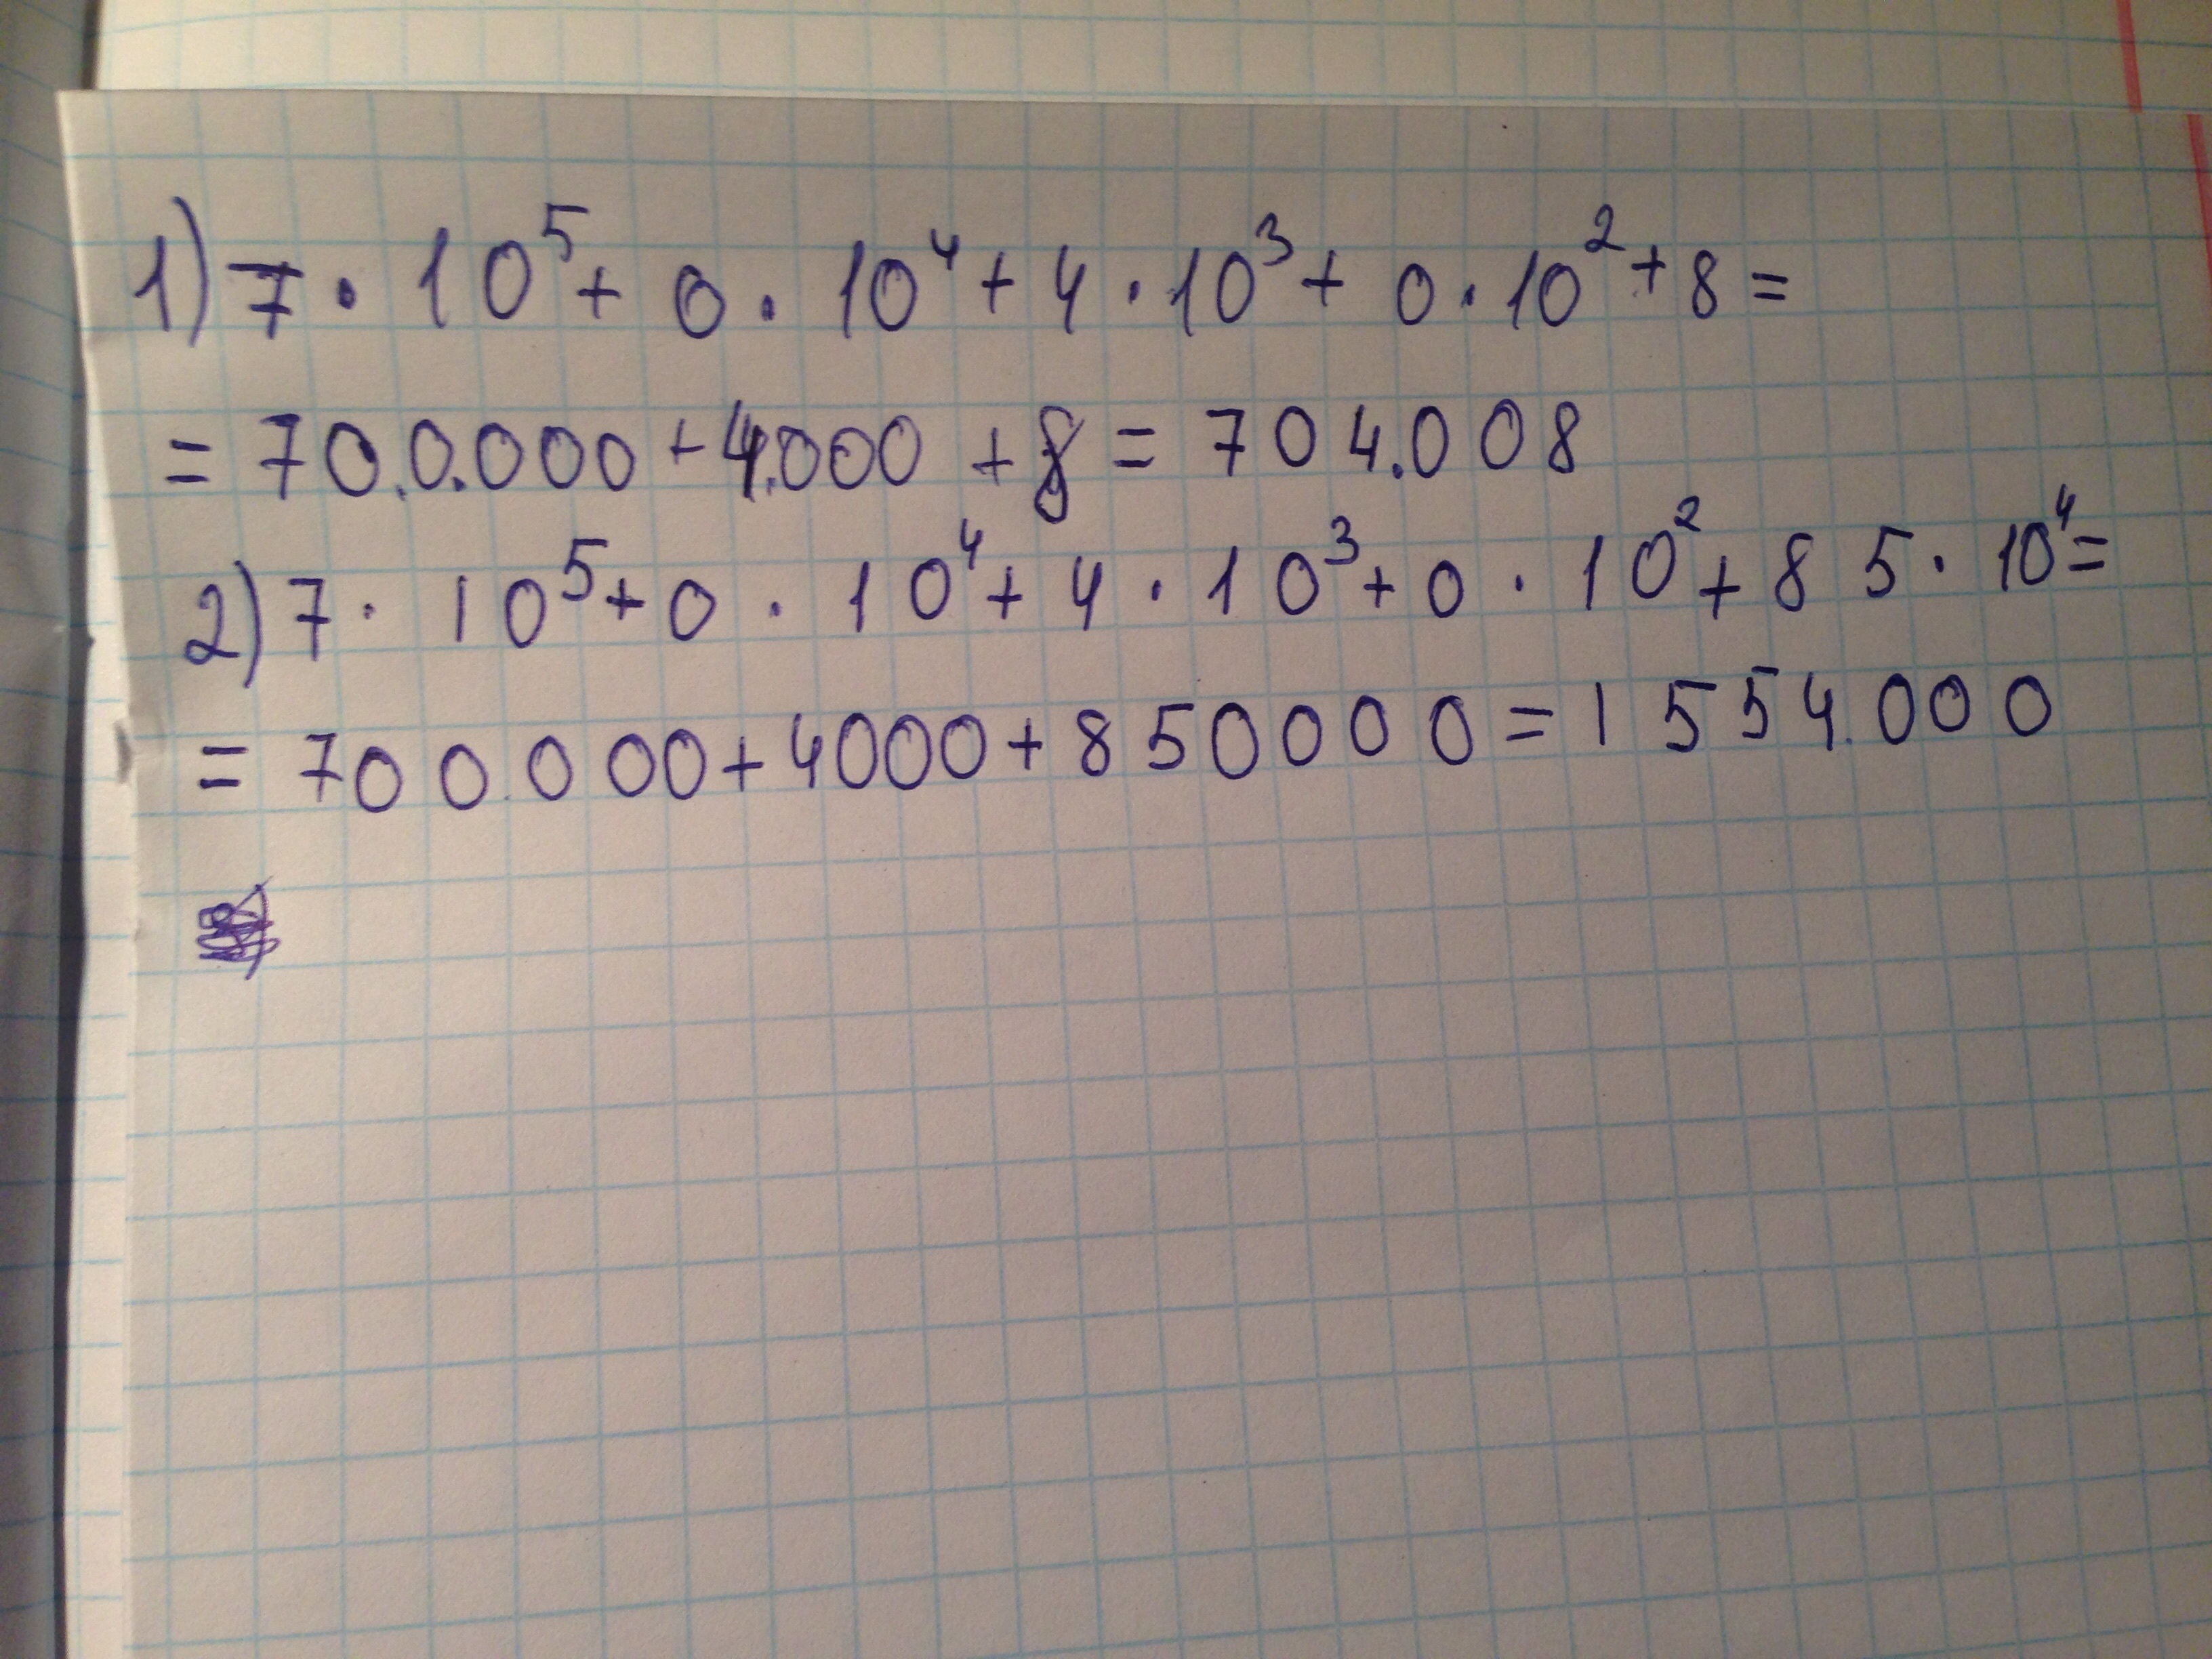 1) 7 · 10⁵ + 0 · 10⁴ + 4 · 10³ + 0 · 10² + 8 =
= 70.0.000 + 4.000 + 8 = 704.008
2) 7 · 10⁵ + 0 · 10⁴ + 4 · 10³ + 0 · 10² + 85 · 10⁴ =
= 700.000 + 4000 + 850000 = 1554.000